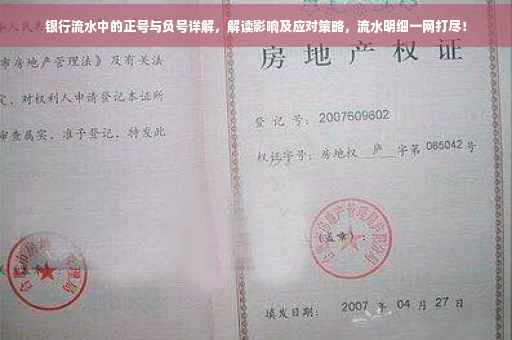 银行流水中的正号与负号详解，解读影响及应对策略，流水明细一网打尽！
市房地产管理法》及有关法
定，对权利人申请登记本证所
审查属实，准予登记，特发此
房地产权证
登记号：2007609602
权证字号：房地权 庐 字第 065042 号
(盖章)：
填发日期：2007 年 04 月 27 日